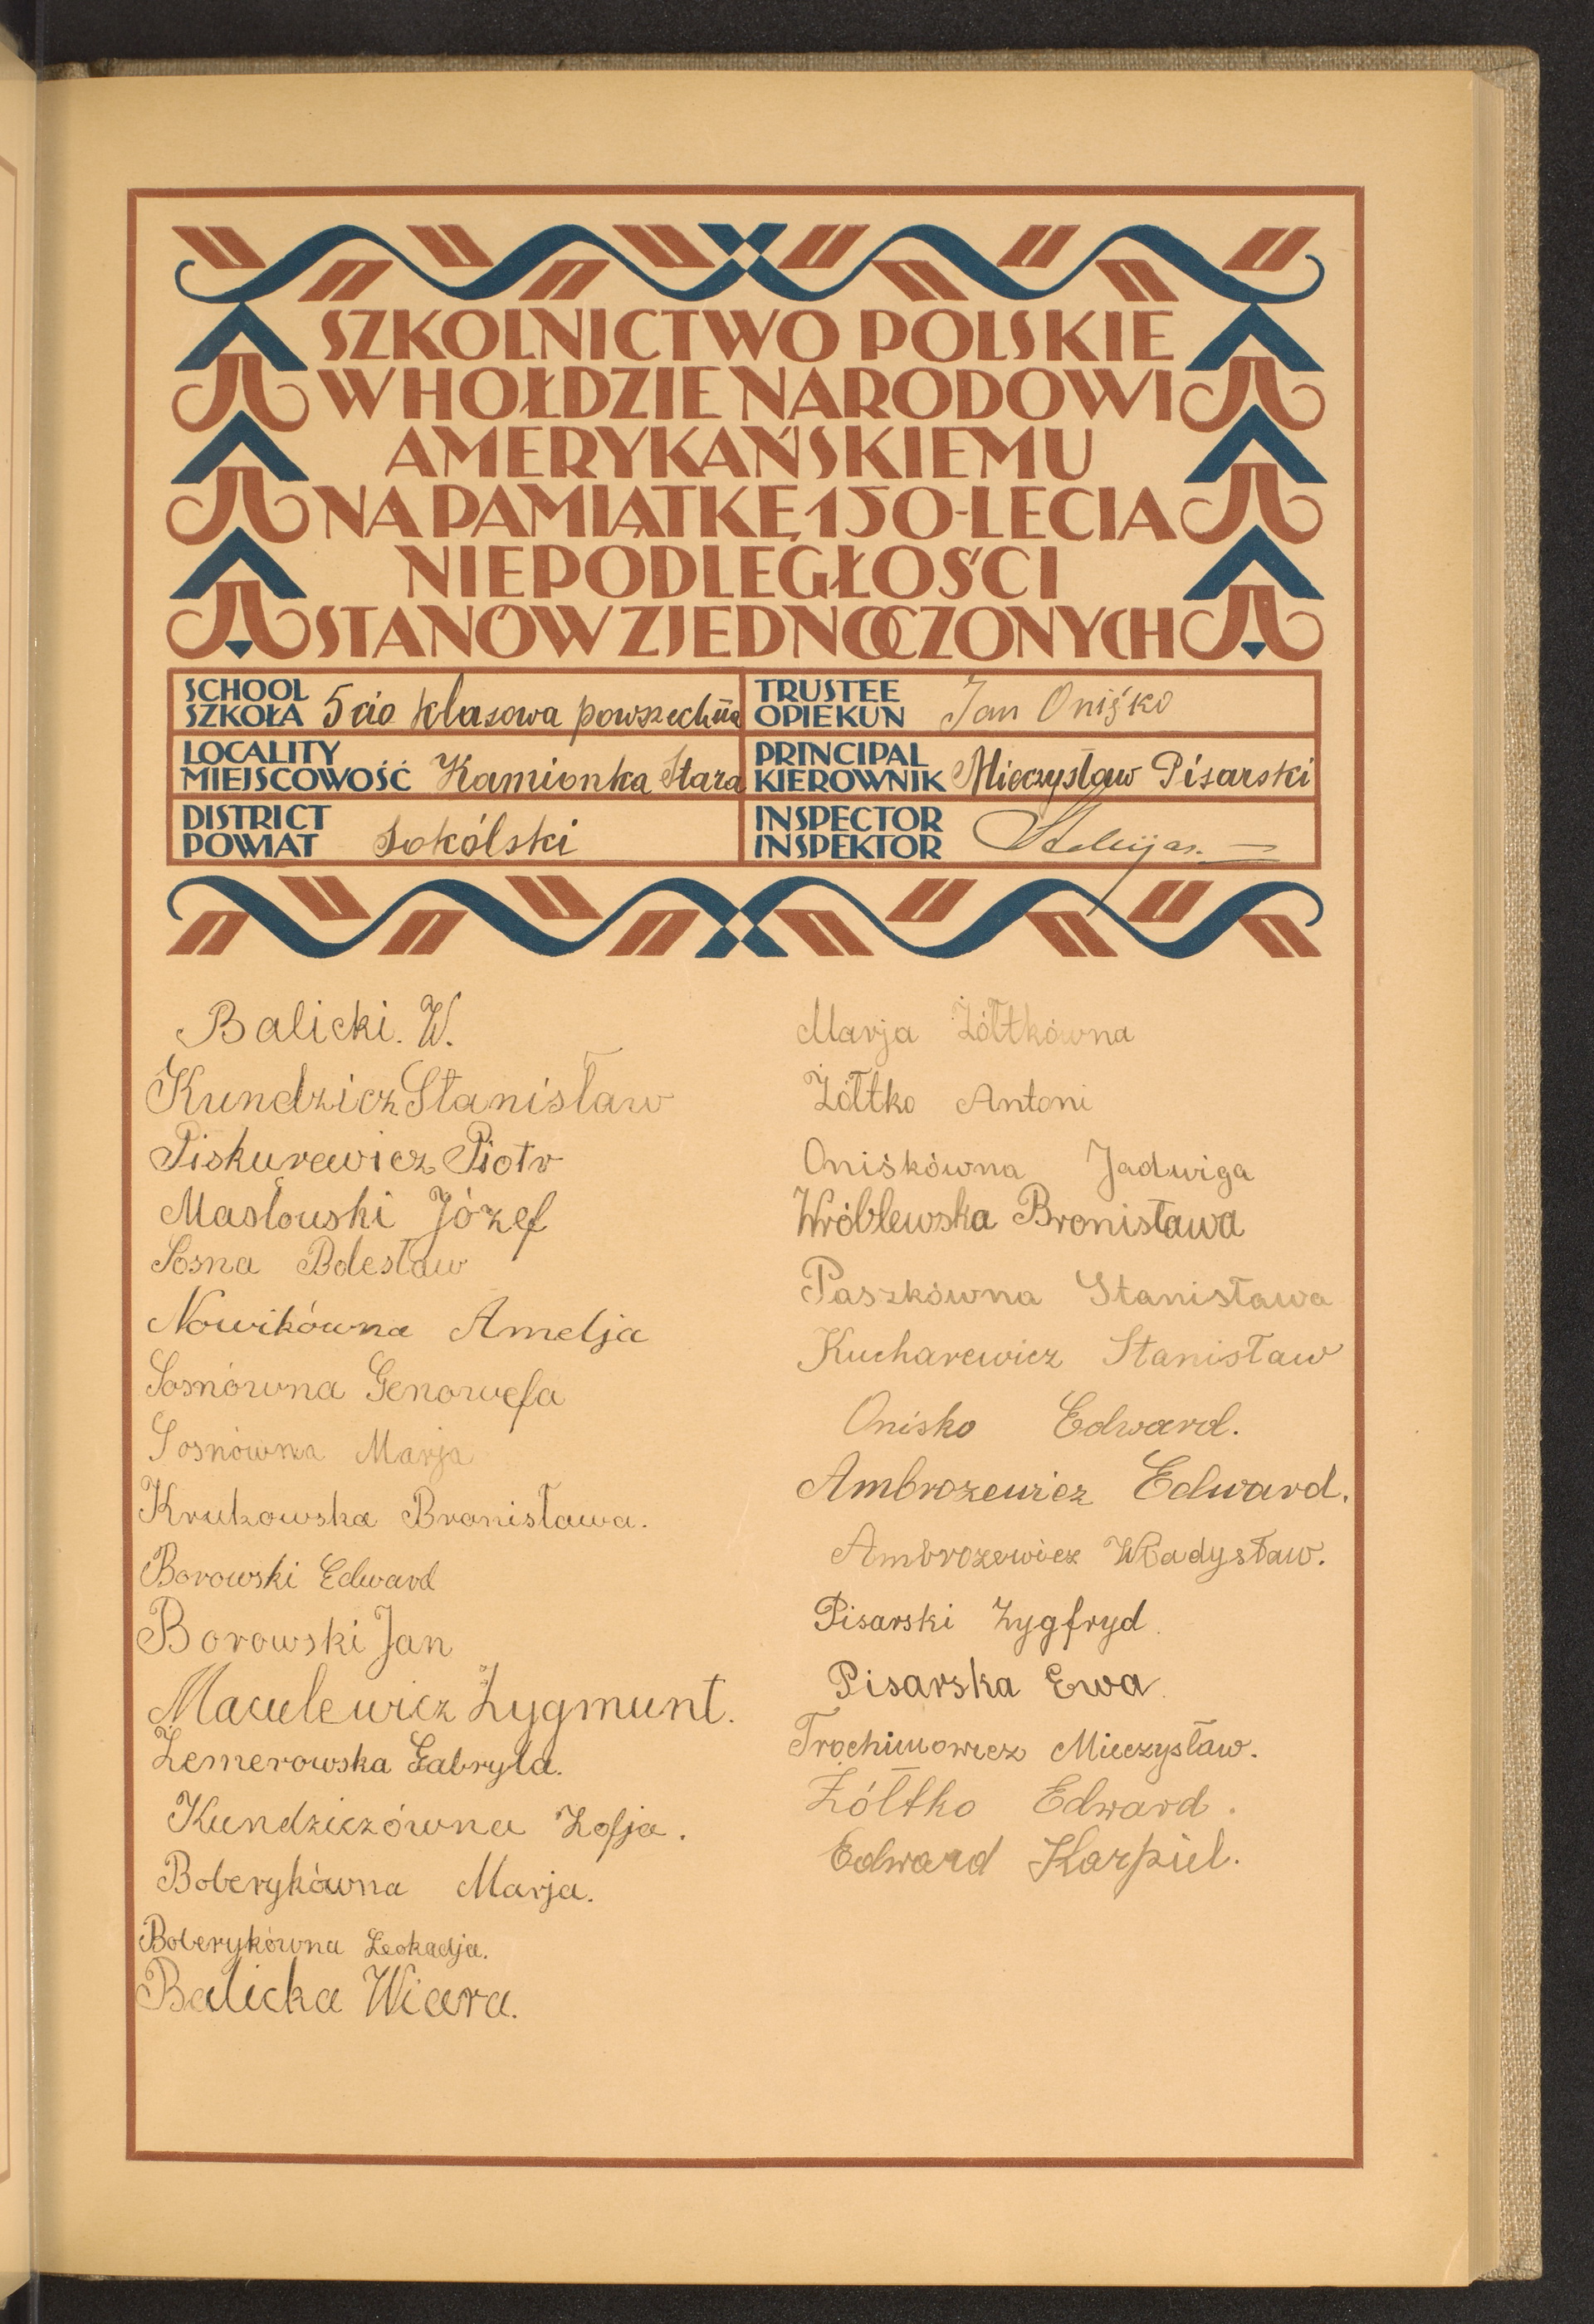 SZKOLNICTWO POLSKIE
W HOŁDZIE NARODOWI
AMERYKAŃSKIEMU
NA PAMIĄTKĘ 150-LECIA
NIEPODLEGŁOŚCI
STANÓW ZJEDNOCZONYCH
SCHOOL
SZKOŁA 5cio klasowa powszechna
LOCALITY
MIEJSCOWOŚĆ Kamionka Stara
DISTRICT
POWIAT Sokólski
TRUSTEE
OPIEKUN Jan Oniśko
PRINCIPAL
KIEROWNIK Mieczysław Pisarski
INSPECTOR
INSPEKTOR
Balicki. W.
Kundzicz Stanisław
Piskurewicz Piotr
Masłowski Józef
Sosna Bolesław
Nowikówna Amelja
Sosnówna Genowefa
Sosnówna Marja
Krukowska Bronisława.
Borowski Edward
Borowski Jan
Maculewicz Zygmunt.
Zemerowska Gabryla.
Kundziczówna Zofja.
Boberykówna Marja.
Boberykówna Leokadja.
Balicka Wiara.
Marja Żółtkówna
Żółtko Antoni
Oniśkówna Jadwiga
Wróblewska Bronisława
Paszkówna Stanisława
Kucharewicz Stanisław
Onisko Edward.
Ambrozewicz Edward.
Ambrozewicz Władysław.
Pisarski Zygfryd.
Pisarska Ewa.
Trochimowicz Mieczysław.
Żółtko Edward.
Edward Karpiel.